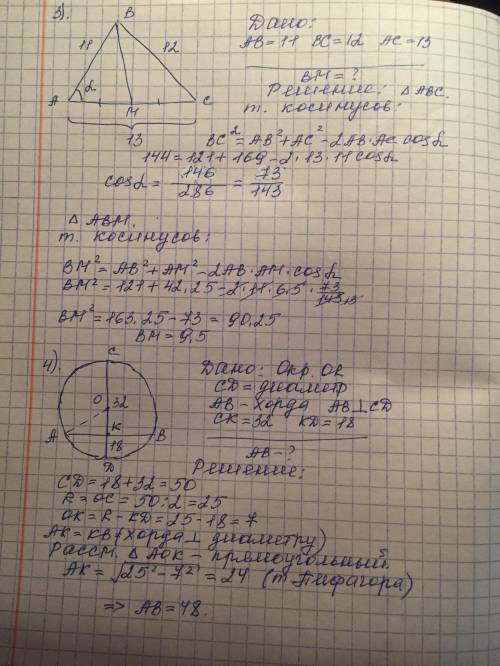 3).
B
Дано:
11 12
AB=11 BC=12 AC=13
BM=?
A α M C
Решение: △ABC.
т. косинусов:
13
BC²=AB²+AC²-2AB·AC cosα
144=121+169-2·13·11cosα
cosα=146/286=73/143
△ABM.
т. косинусов:
BM²=AB²+AM²-2AB·AM·cosα
BM²=121+42,25-2·11·6,5·73/143
BM²=163,25-73=90,25
BM=9,5
4).
C
Дано: Окр. OR
CD=диаметр
O 32
AB-хорда AB⊥CD
A K B
CK=32 KD=18
18
D
AB-?
Решение:
CD=18+32=50
R=OC=50:2=25
OK=R-KD=25-18=7
AK=KB(хорда⊥ диаметру)
Рассм. △AOK-прямоугольный.
AK=√25²-7²=24 (т.Пифагора)
=> AB=48.